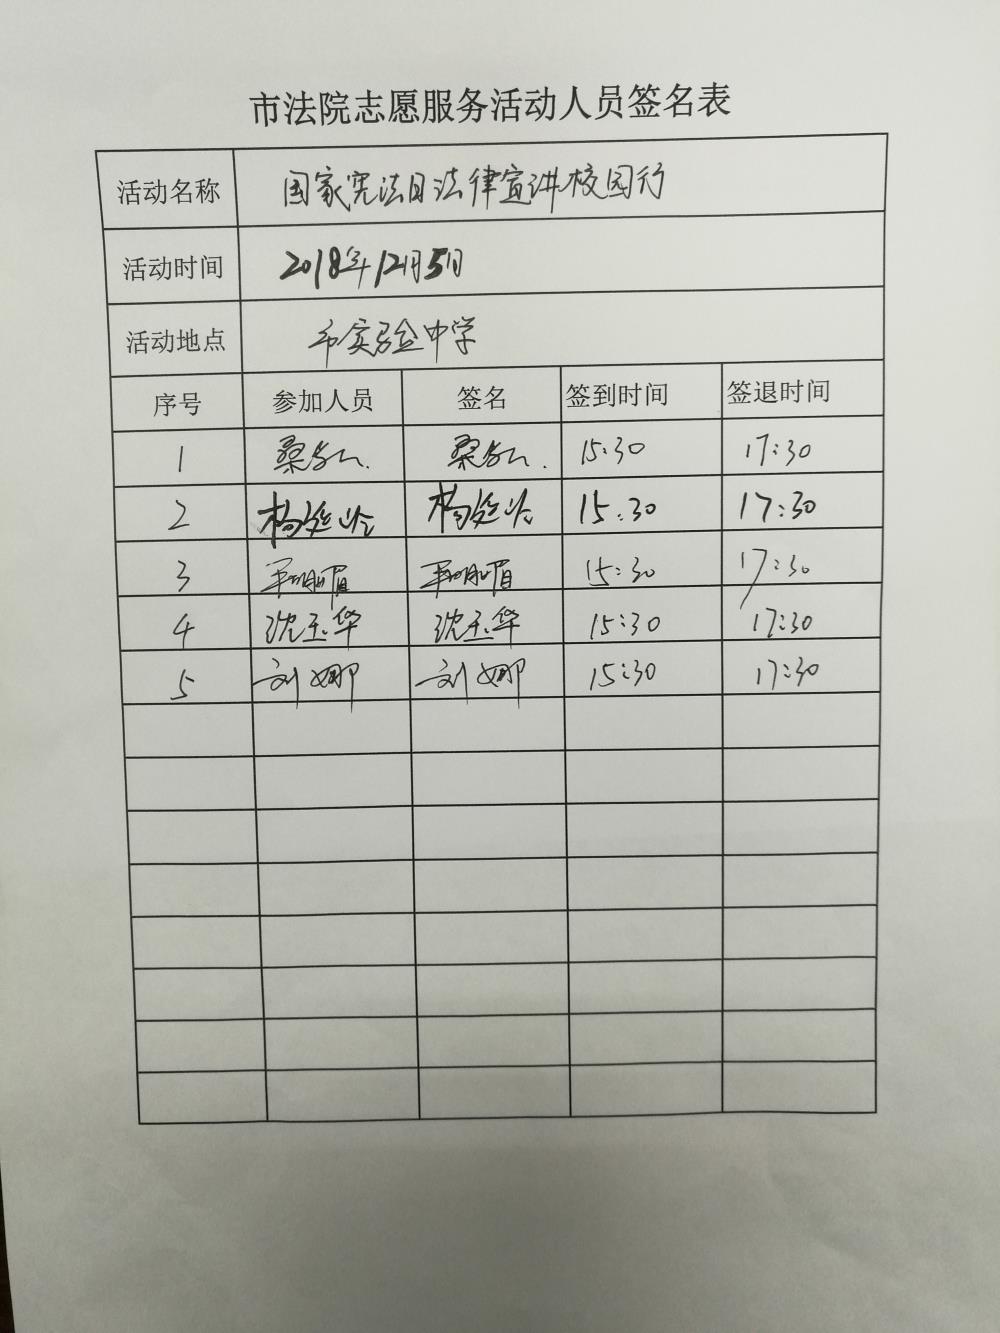 市法院志愿服务活动人员签名表
活动名称 国家宪法日法律宣讲校园行
活动时间 2018年12月5日
活动地点 市实验中学
序号 参加人员 签名 签到时间 签退时间
1 15:30 17:30
2 杨 杨 15:30 17:30
3 15:30 17:30
4 沈玉华 沈玉华 15:30 17:30
5 刘娜 刘娜 15:30 17:30